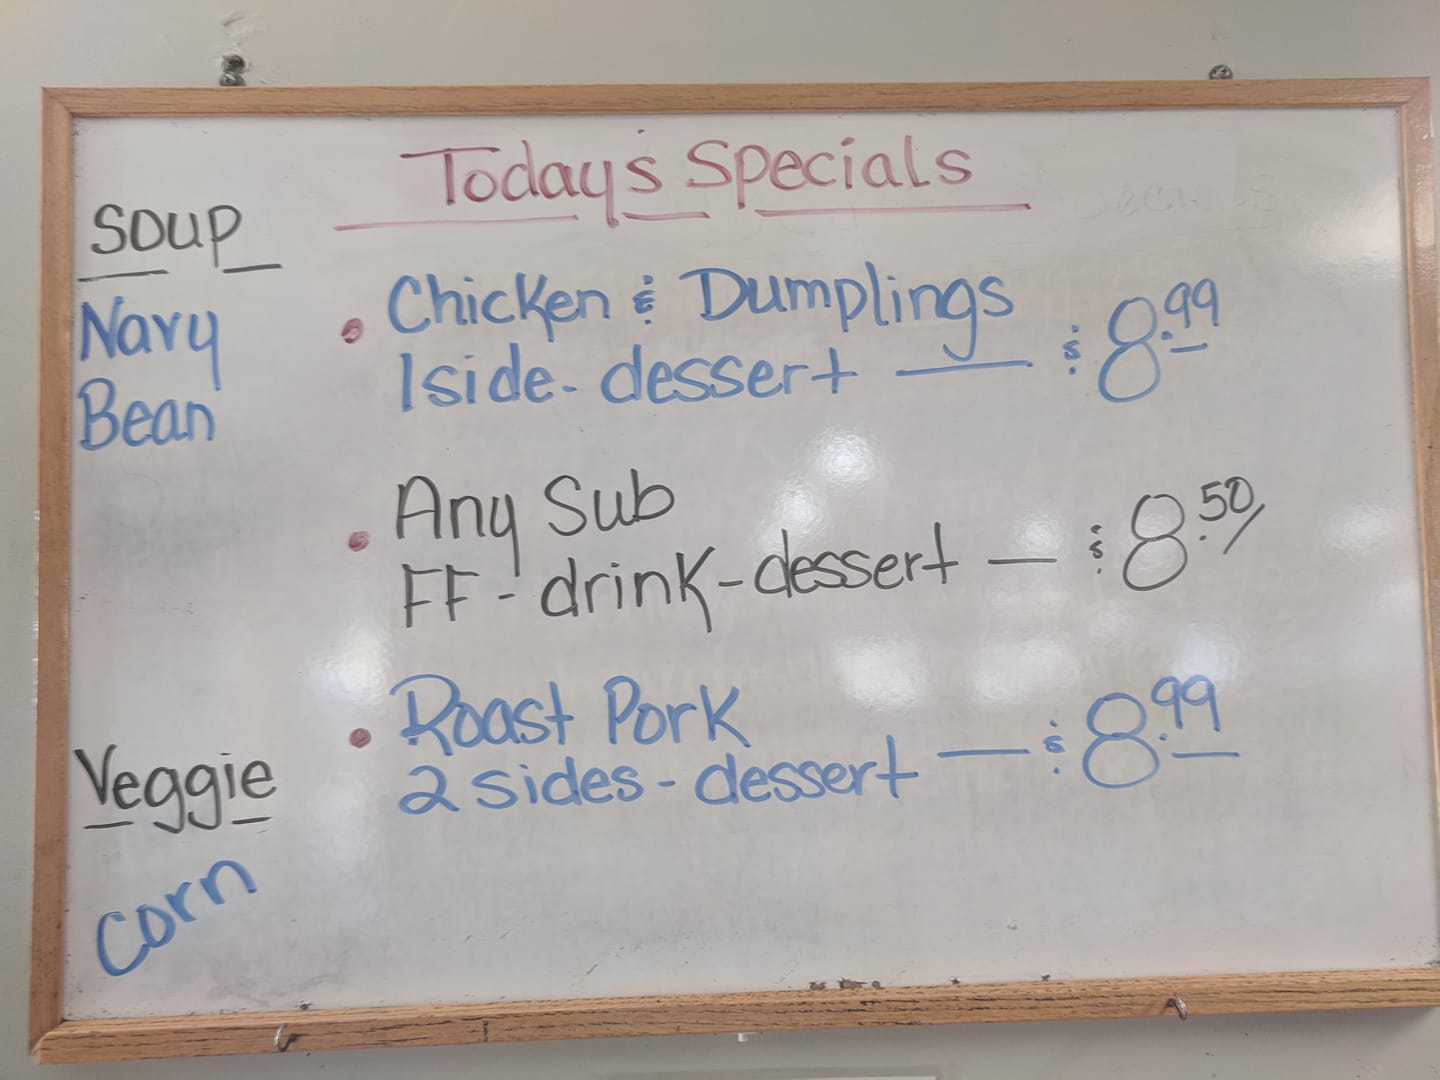 Today's Specials
Soup
Navy
Bean
• Chicken & Dumplings
1 side - dessert — $8.99
• Any Sub
FF - drink - dessert — $8.50/
• Roast Pork
2 sides - dessert — $8.99
Veggie
Corn